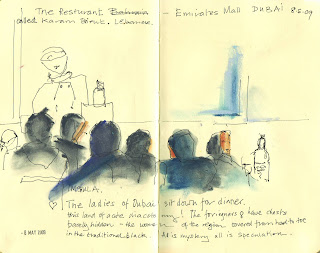 The Resturant Bahrain — Emirates Mall DUBAI 8-5-09
called Karam Beirut. Lebanese.
The ladies of Dubai sit down for dinner.
this land of
barely hidden - the women of the region covered from head to toe
in the traditional black. All is mystery all is speculation.
- 8 MAY 2009